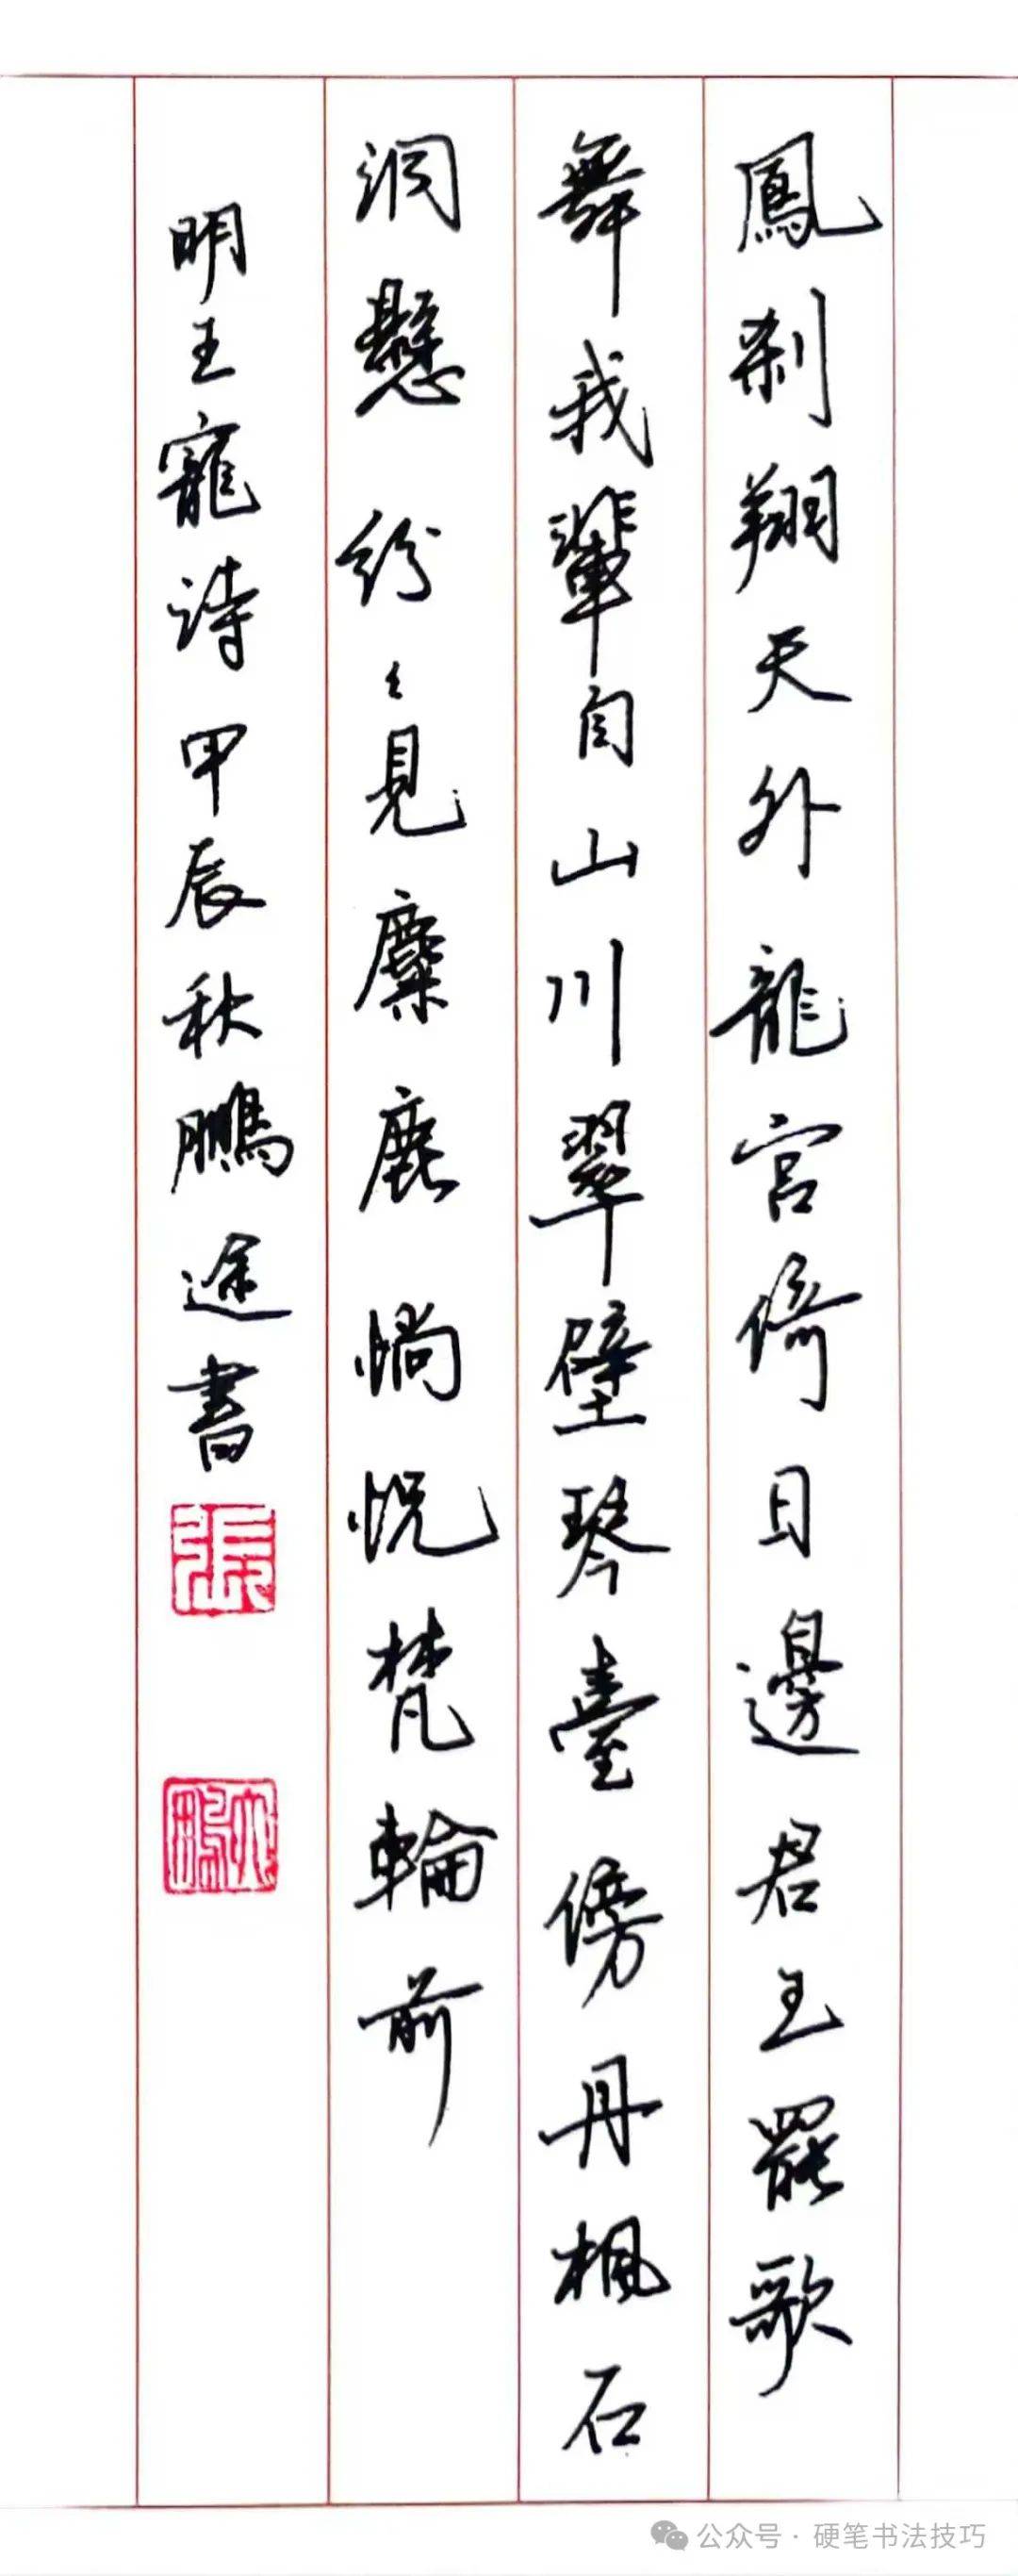 鳳剎翔天外龍宮倚日邊君王罷歌
舞我輩自山川翠壁琴臺傍丹楓石
洞懸紛〻見麋鹿惝怳梵輪前
明王寵詩甲辰秋鵬途書
張
公众号·硬笔书法技巧